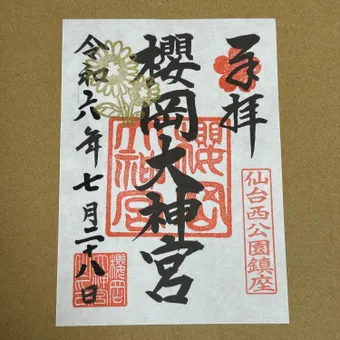 奉拝
櫻岡大神宮
櫻岡大神宮
仙台西公園鎮座
令和六年七月二十八日
櫻岡大神宮